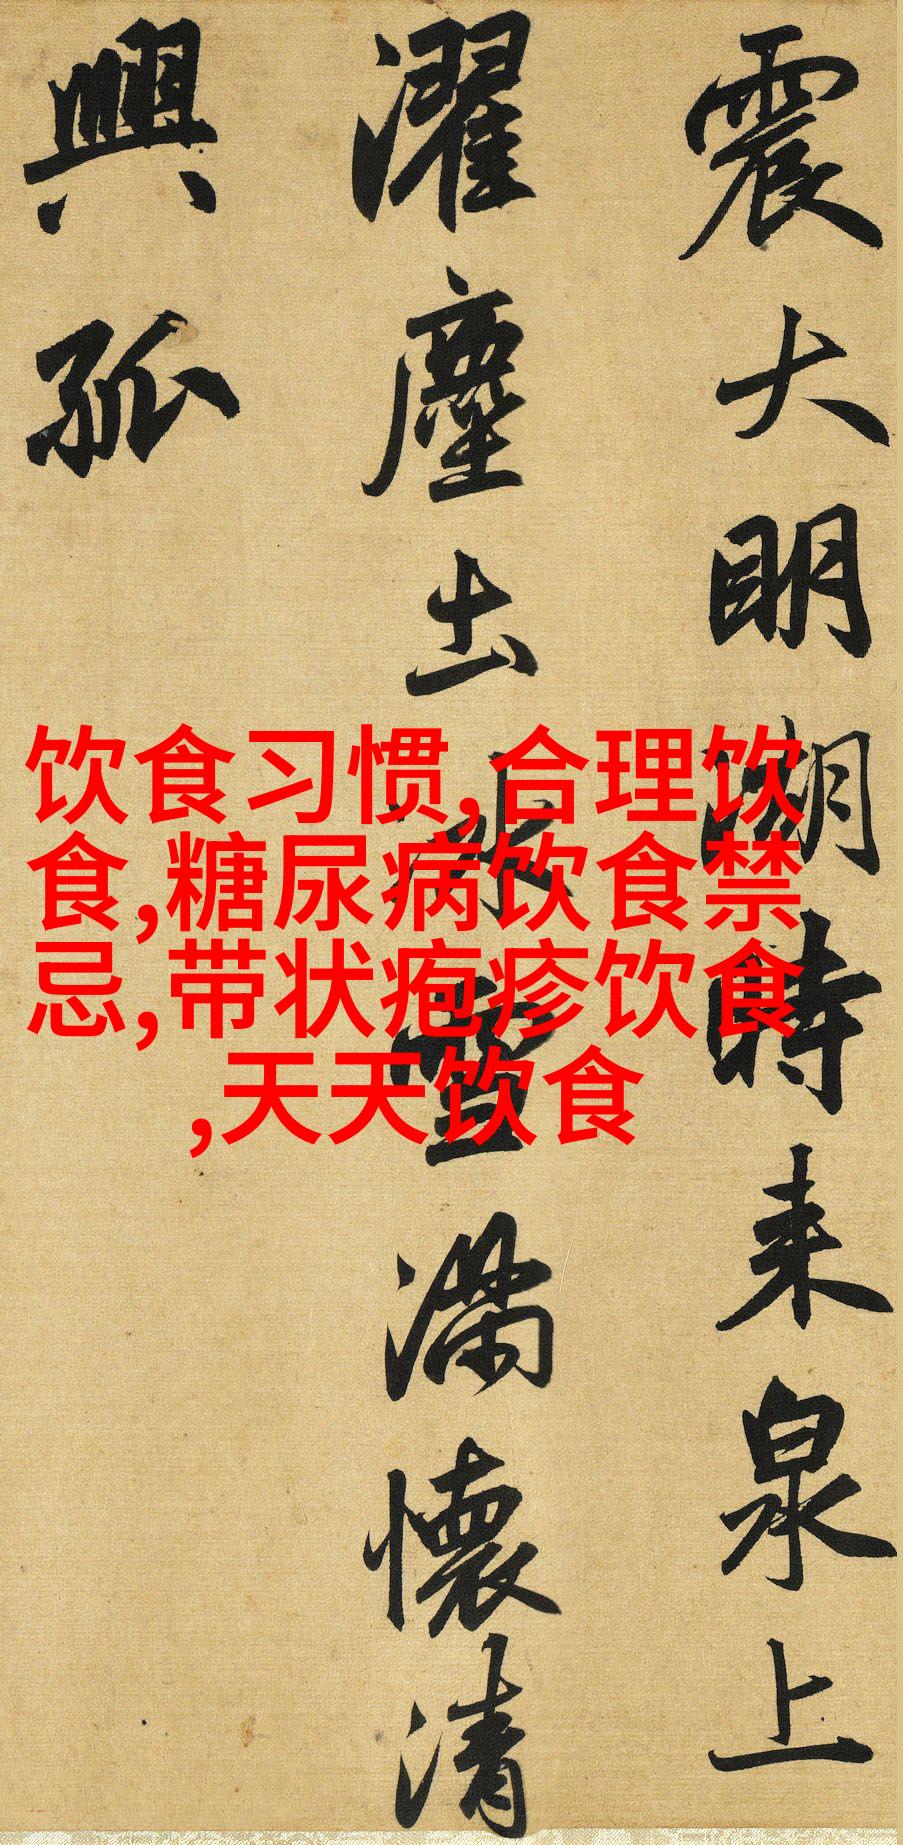 震大明湖時来泉上
濯塵出冰雪滿懷清
興孤
饮食习惯,合理饮
食,糖尿病饮食禁
忌,带状疱疹饮食
,天天饮食